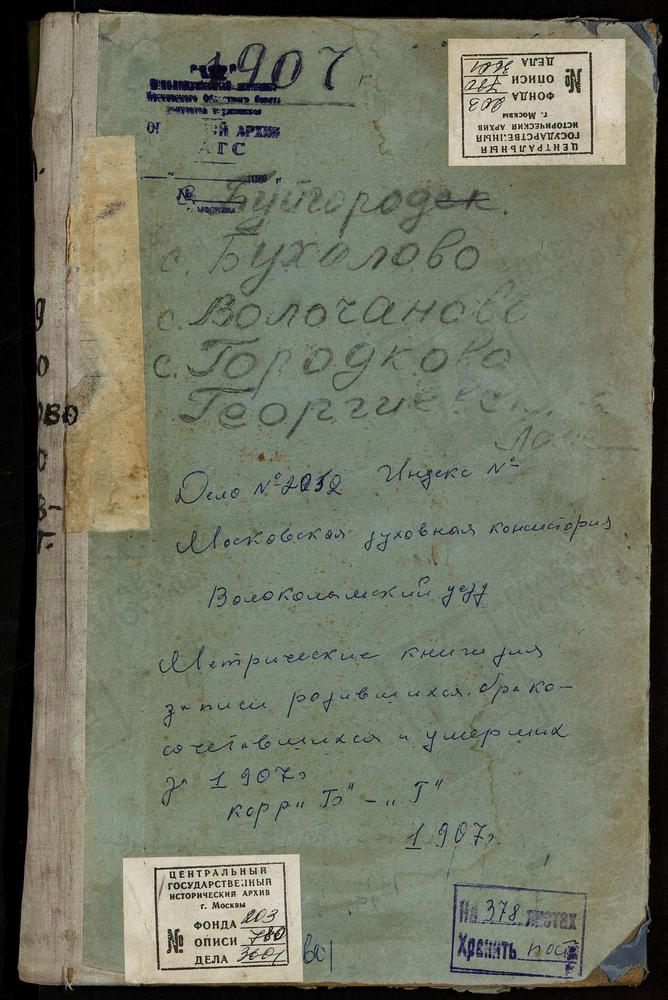 1907 г
Московского Областного Совета
АРХИВ
АГС
№
г. Москвы
ЦЕНТРАЛЬНЫЙ
ГОСУДАРСТВЕННЫЙ
ИСТОРИЧЕСКИЙ АРХИВ
г. Москвы
ФОНДА 203
№ ОПИСИ 780
ДЕЛА 3601
Буйгородек.
с. Бухолово
с. Волочаново
с. Городково
Георгиевский
Дело № 2052 Индекс №
Московская духовная консистория
Волоколамский уезд
Метрические книги для
записи родившихся, брако-
сочетавшихся и умерших
за 1907г
корр "Б" – "Г"
1907г.
ЦЕНТРАЛЬНЫЙ
ГОСУДАРСТВЕННЫЙ
ИСТОРИЧЕСКИЙ АРХИВ
г. Москвы
ФОНДА 203
№ ОПИСИ 780
ДЕЛА 3601
На 378 листах
Хранить пост